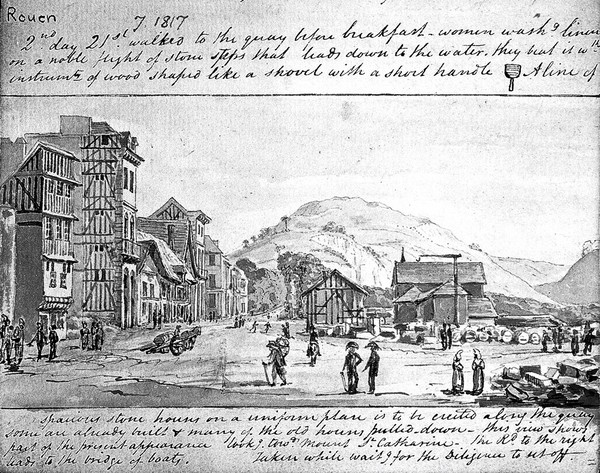 Rouen
7 1817
2nd day 21st. walked to the quay before breakfast - women washg linen
on a noble flight of stone steps that leads down to the water. they beat it wth
instrumts of wood shaped like a shovel with a short handle A line of
spacious stone houses on a uniform plan is to be erected along the quay
some are already built & many of the old houses pulled down - this view shows
part of the present appearance lookg. towds Mount St. Catharine - the Rd. to the right
leads to the bridge of boats. Taken while waitg for the Diligence to set off